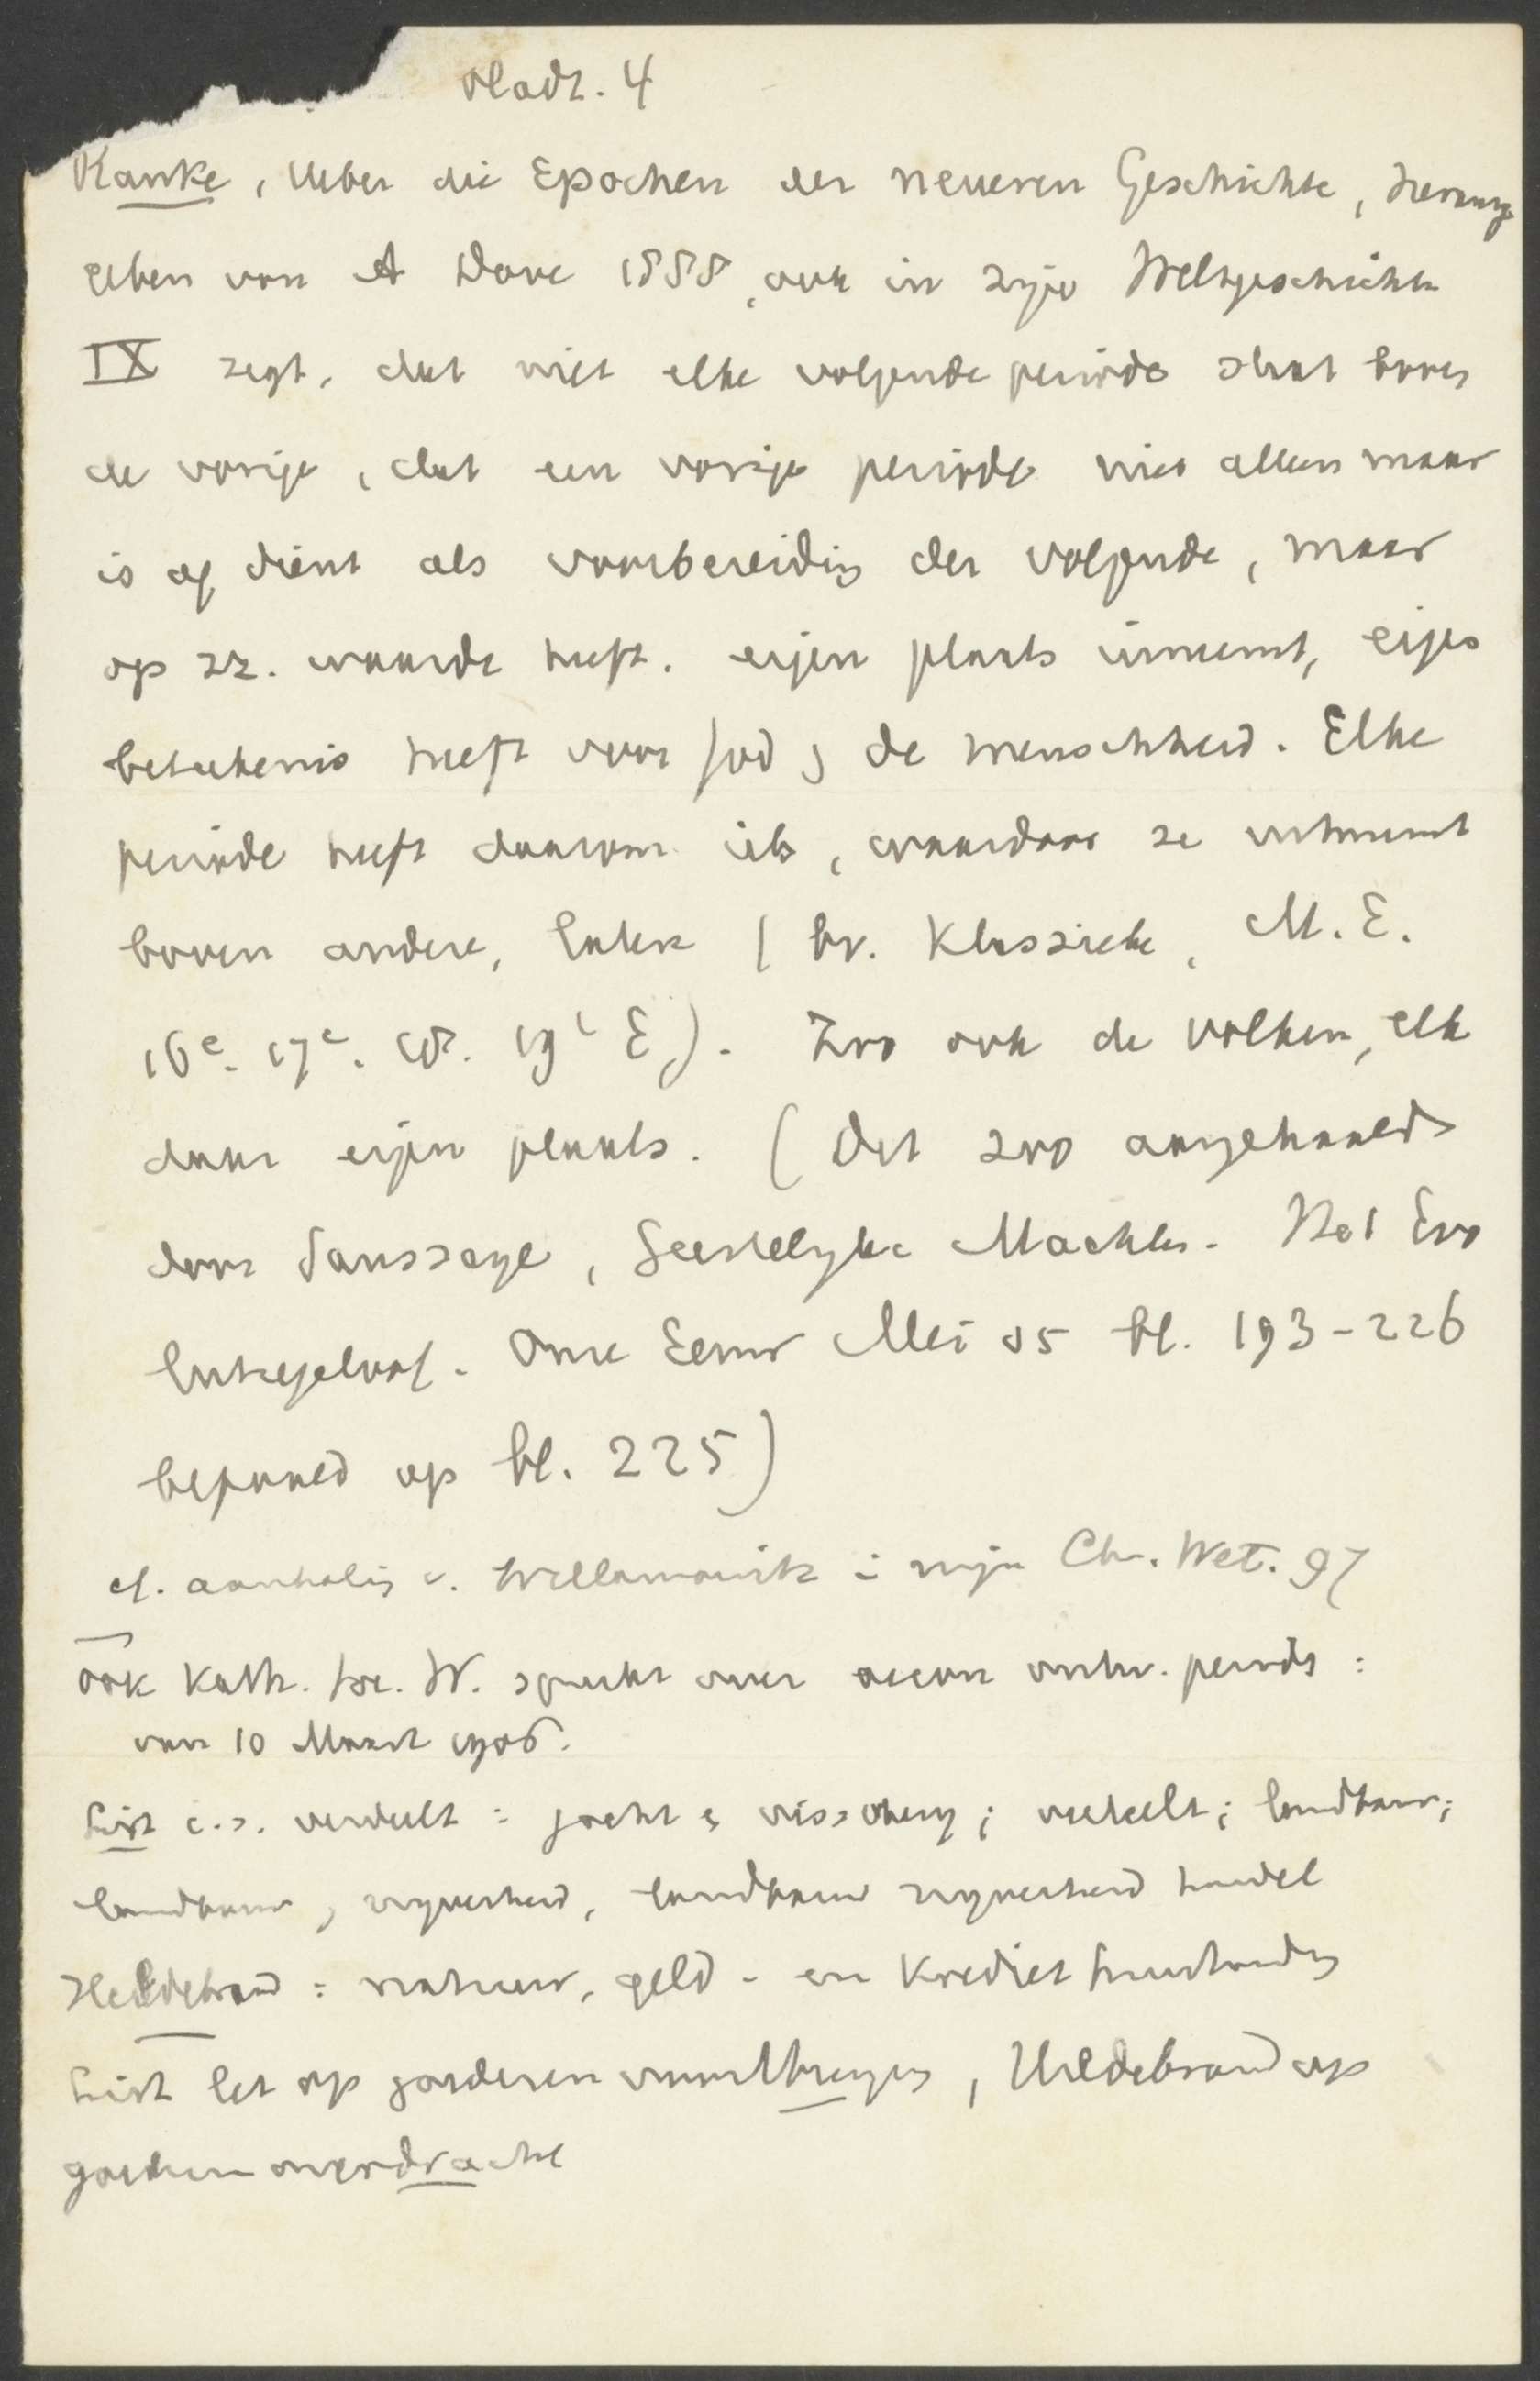 bladz. 4
Ranke, Ueber die Epochen der neueren Geschichte, herausg
eben von A Dove 1888, ook in zijn Weltgeschichte
IX zegt, dat niet elke volgende periode staat boven
de vorige, dat een vorige periode niet alleen maar
is of dient als voorbereiding der volgende, maar
op zz. waarde heeft. eigen plaats inneemt, eigen
beteekenis heeft voor God & de menschheid. Elke
periode heeft daarom iets, waardoor ze uitmunt
boven andere, latere (bv. Klassieke, M.E.
16e. 17e. 18. 19e E). Zoo ook de volken, elk
daar eigen plaats. (Dit zoo aangehaald
door Saussaye, Geestelijke Machten. No 1 Evo
lutiegeloof. Onze Eeuw Mei 05 bl. 193-226
bepaald op bl. 225)
cf. aanhaling v. Willamowitz in mijn Chr. Wet. 97
ook Kath. Soc. W. spreekt over oecon ontw. periods:
van 10 Maart 1906.
List c.s. verdeelt: jacht & visscherij; veeteelt; landbouw;
landbouw, nijverheid, landbouw nijverheid handel
Hildebrand: natuur, geld- en krediet huishouding
List let op goederen voortbrengen, Hildebrand op
goederen overdracht